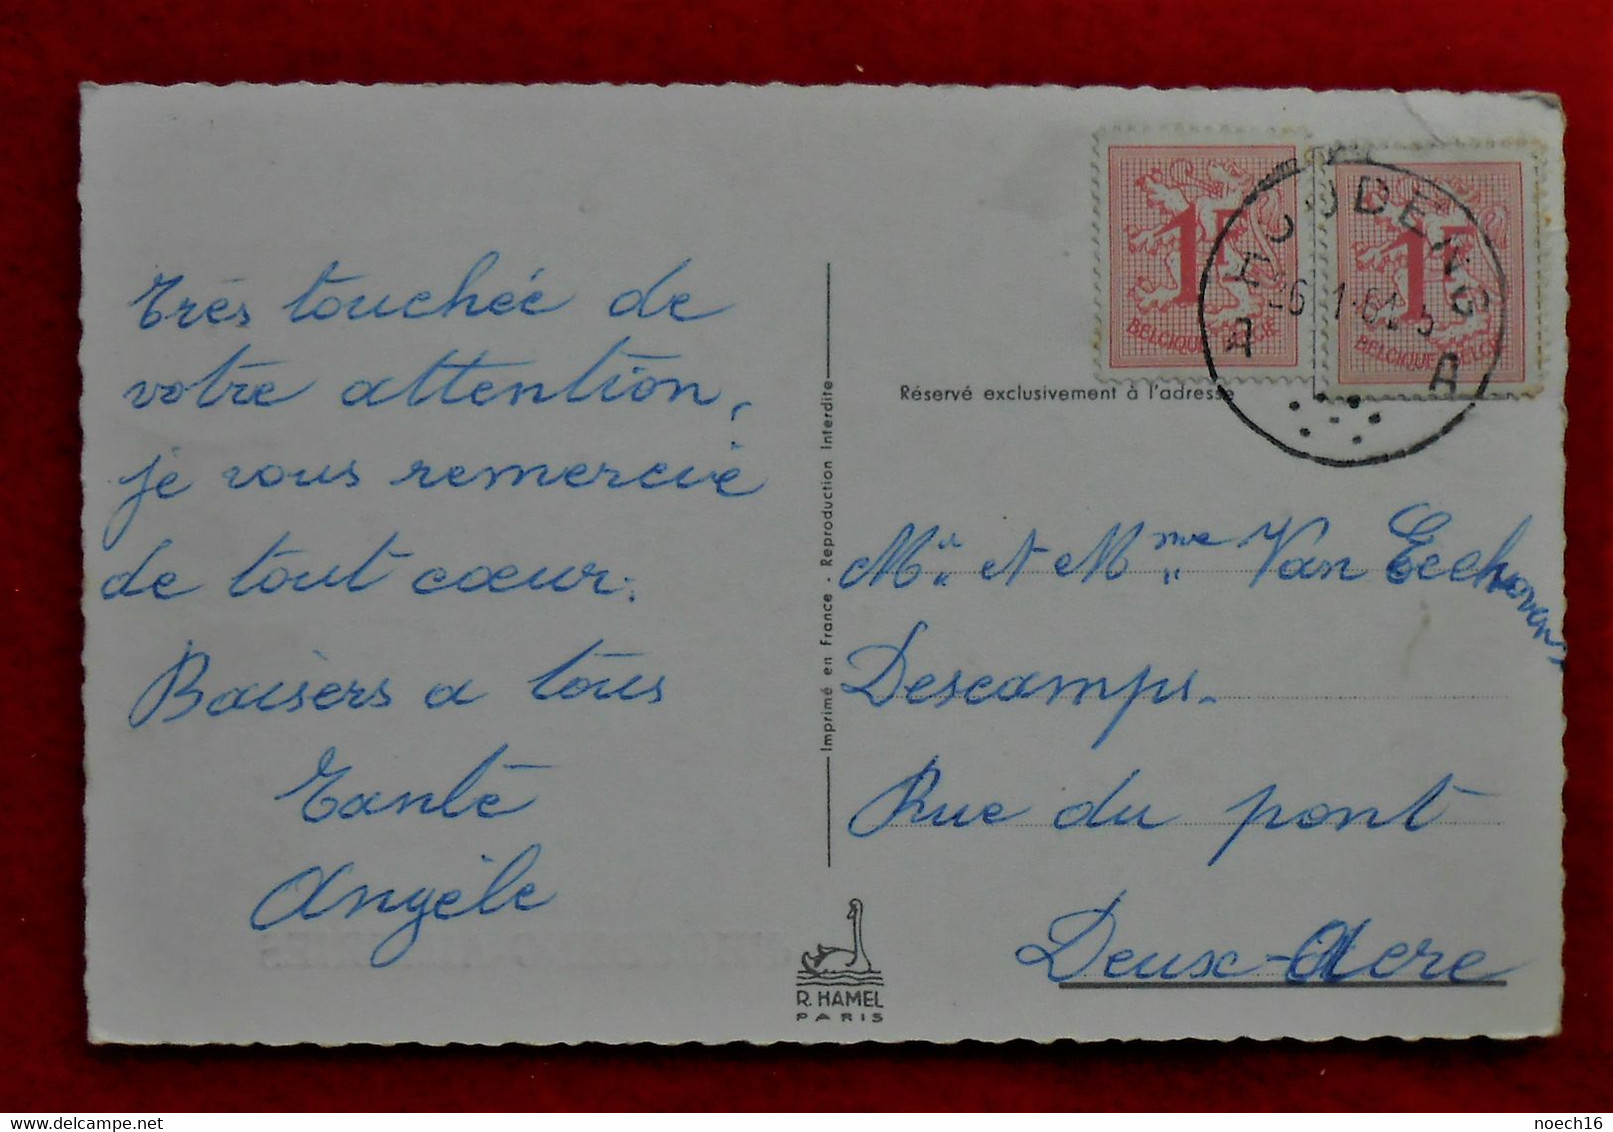 Très touchée de
votre attention,
je vous remercie
de tout coeur.
Baisers a tous
Tante
Angèle
Imprimé en France - Reproduction Interdite
R. HAMEL
PARIS
1F
BELGIQUE BELGIE
1F
BELGIQUE BELGIE
HOUDENG
A A
Réservé exclusivement à l'adresse
Mr et Mme Van Eechovens
Descamps.
Rue du pont
Deux-Acre
noech16